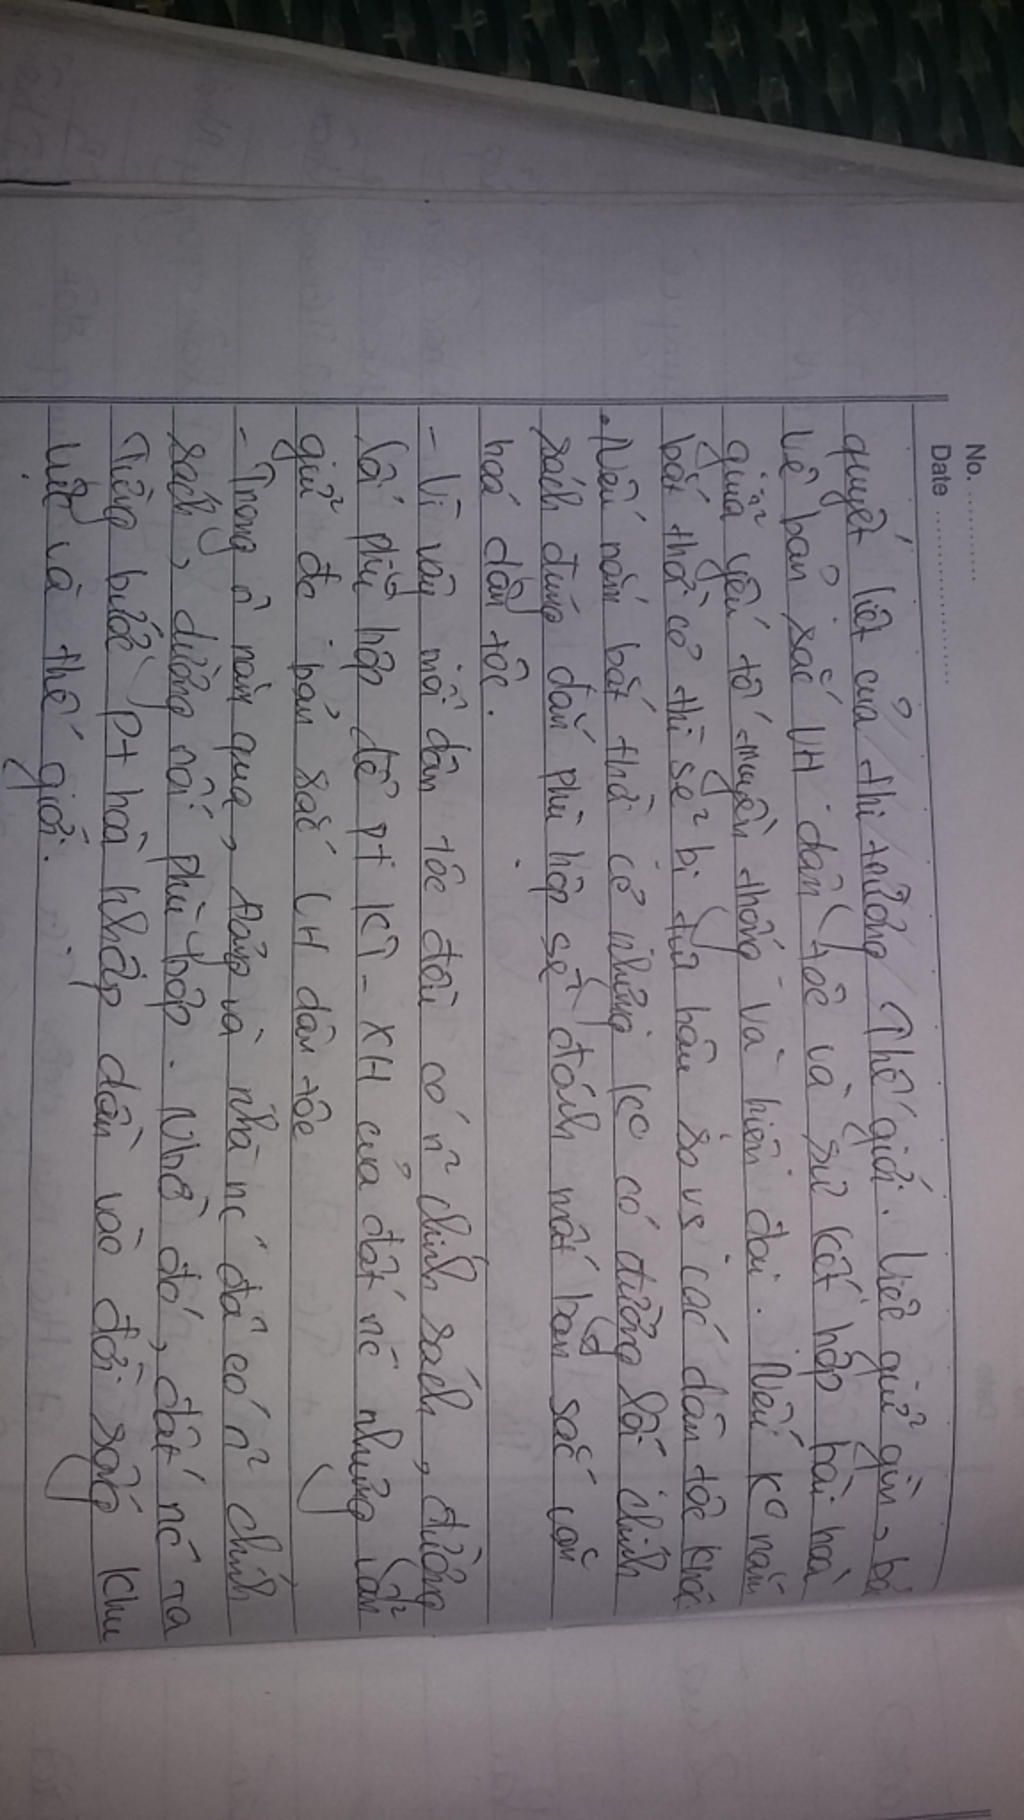 No. ............
Date .....................
quyết liệt của thị trường thế giới. Việc giữ gìn, bảo
vệ bản sắc VH dân tộc và sự kết hợp hài hoà
giữa yếu tố truyền thống và hiện đại. Nếu K⁰ nắm
bắt thời cơ thì sẽ bị tụt hậu so vs các dân tộc khác.
Nếu nắm bắt thời cơ nhưng K⁰ có đường lối chính
sách đúng đắn phù hợp sẽ đánh mất bản sắc văn
hoá dân tộc.
- Vì vậy mỗi dân tộc đều có n² chính sách, đường
lối phù hợp để pt KT - XH của đất nc nhưng vẫn
giữ đc bản sắc VH dân tộc
- Trong n² năm qua, Đảng và nhà nc đã có n² chính
sách, đường lối phù hợp. Nhờ đó, đất nc ta
từng bước pt hoà nhập dần vào đời sống khu
vực và thế giới.